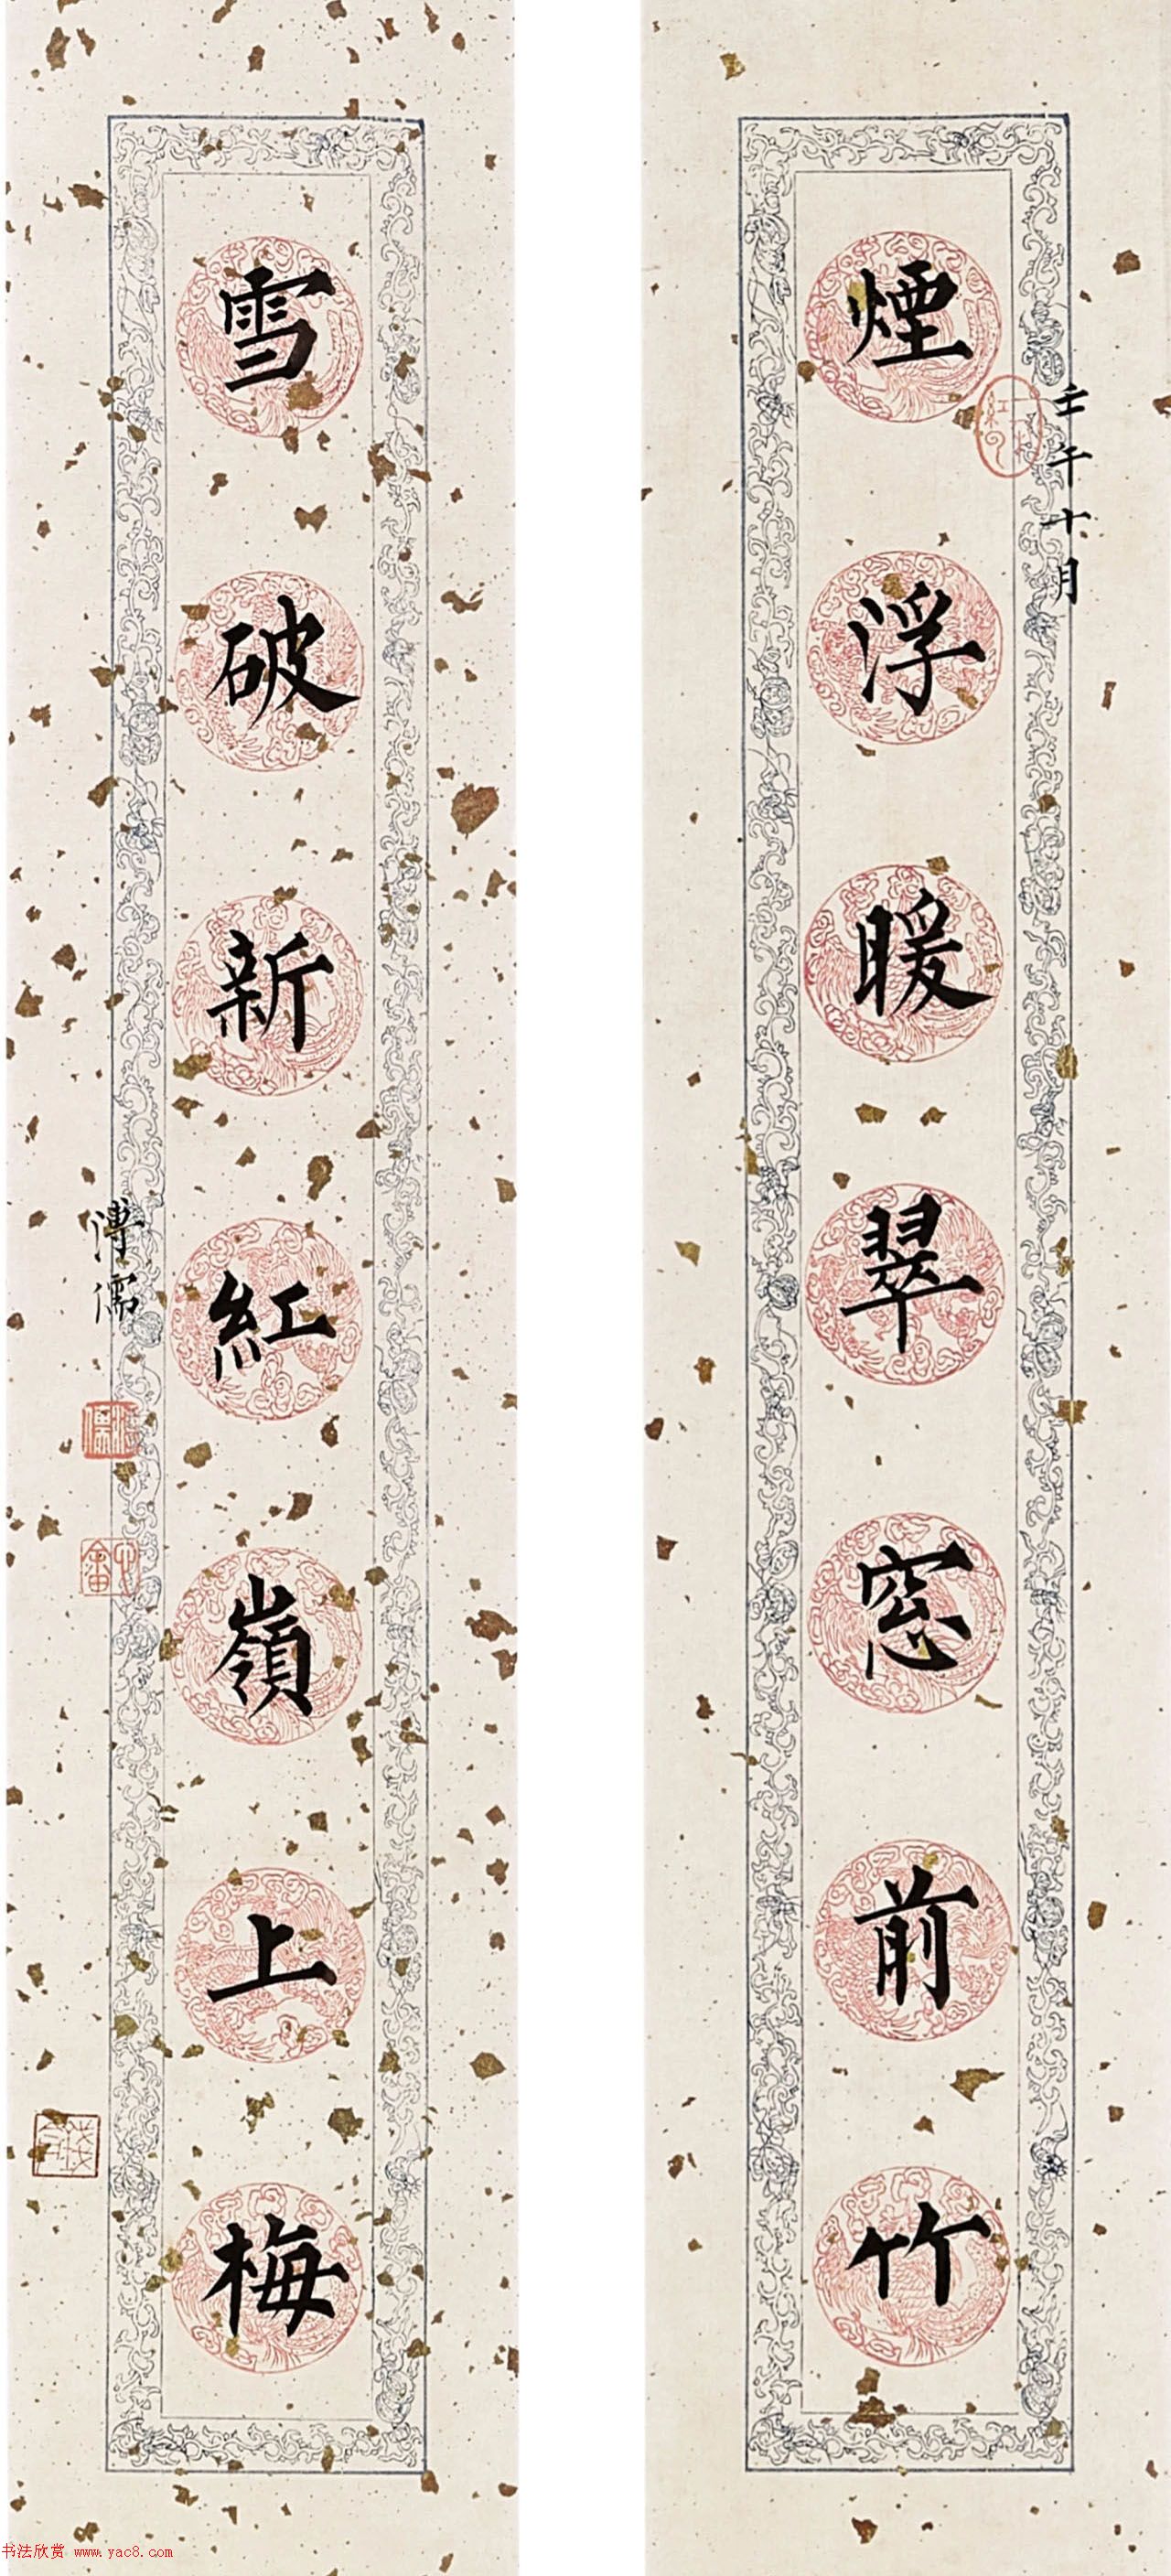 壬午十月
煙浮暖翠窓前竹
雪破新紅嶺上梅
溥儒
溥儒
心畬
书法欣赏 www.yac8.com